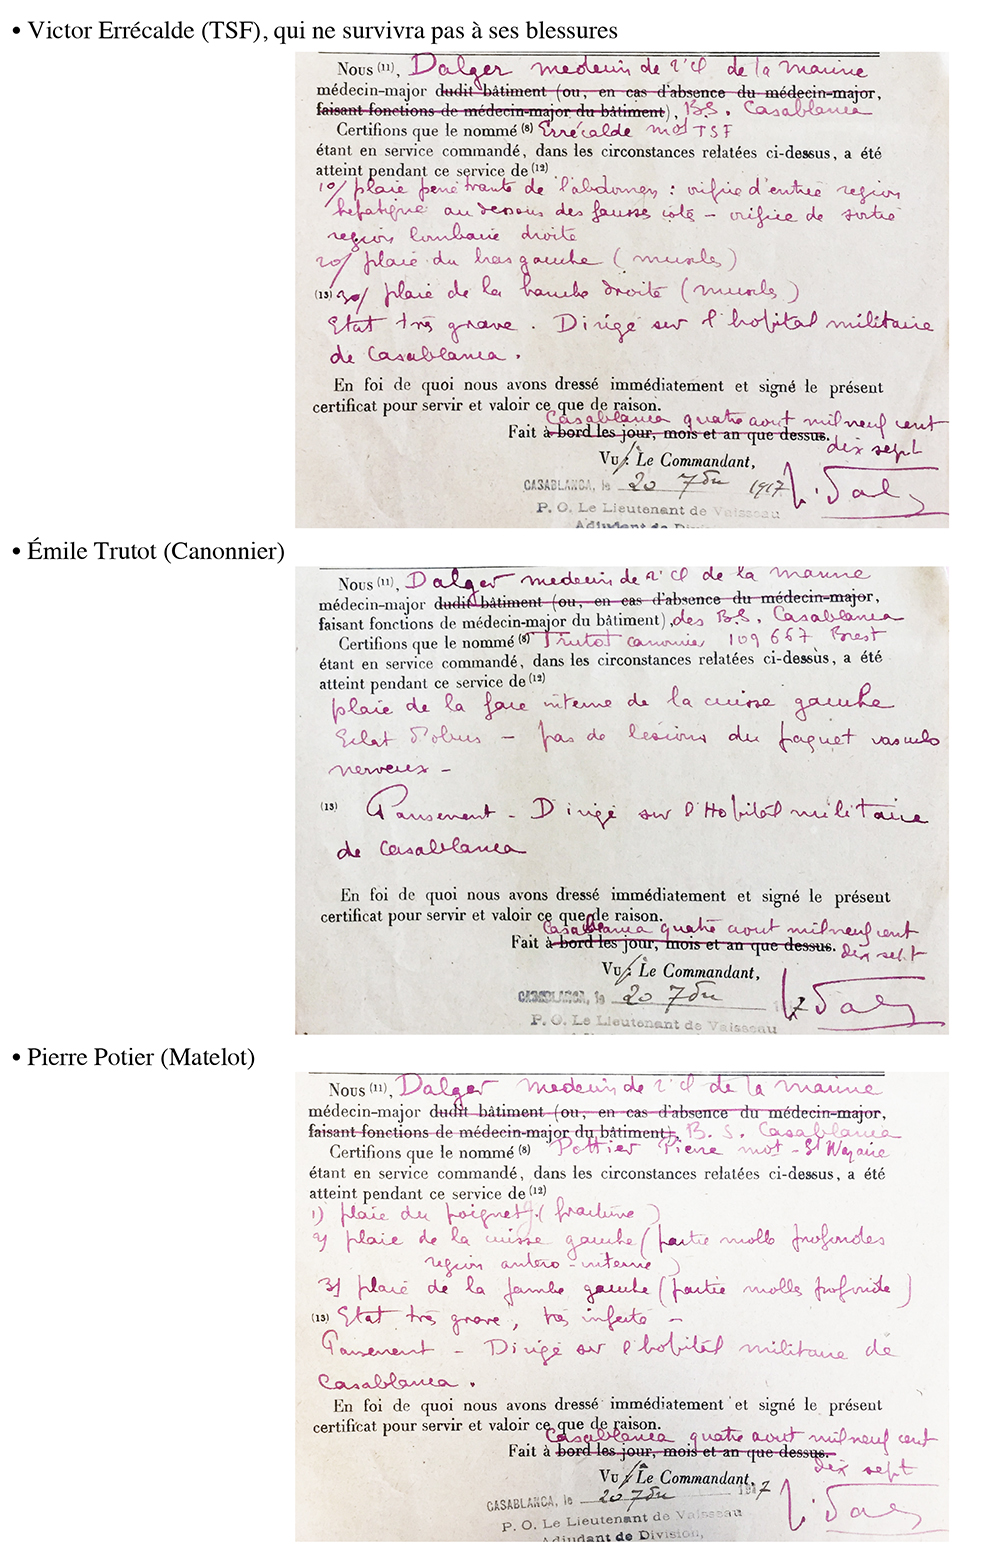 • Victor Errécalde (TSF), qui ne survivra pas à ses blessures
Nous (11), Dalger medecin de 2e cl de la marine
médecin-major dudit bâtiment (ou, en cas d'absence du médecin-major,
faisant fonctions de médecin-major du bâtiment), B.S. Casablanca
Certifions que le nommé (8) Errécalde mot TSF
étant en service commandé, dans les circonstances relatées ci-dessus, a été
atteint pendant ce service de (12)
1o/ plaie penétrante de l'abdomen : orifice d'entrée region
hepatique au dessous des fausses cote - orifice de sortie
region lombaire droite
2o/ plaie du bras gauche (muscles)
(13) 3o/ plaie de la hanche droite (muscles)
Etat très grave. Dirigé sur l'hopital militaire
de Casablanca.
En foi de quoi nous avons dressé immédiatement et signé le présent
certificat pour servir et valoir ce que de raison.
Casablanca quatre aout mil neuf cent
Fait à bord les jour, mois et an que dessus. dix sept
Vu : Le Commandant,
CASABLANCA, le 20 7bre 1917
P. O. Le Lieutenant de Vaisseau
Adjudant de Division
• Émile Trutot (Canonnier)
Nous (11), Dalger medecin de 2e cl de la marine
médecin-major dudit bâtiment (ou, en cas d'absence du médecin-major,
faisant fonctions de médecin-major du bâtiment), des B.S. Casablanca
Certifions que le nommé (8) Trutot canonier 109 667 Brest
étant en service commandé, dans les circonstances relatées ci-dessus, a été
atteint pendant ce service de (12)
plaie de la face interne de la cuisse gauche
Eclat d'obus - pas de lésions du paquet vasculo
nerveux -
(13) Pansement - Dirigé sur l'Hopital militaire
de Casablanca
En foi de quoi nous avons dressé immédiatement et signé le présent
certificat pour servir et valoir ce que de raison.
Casablanca quatre aout mil neuf cent
Fait à bord les jour, mois et an que dessus. dix sept
Vu : Le Commandant,
CASABLANCA, le 20 7bre 1917
P. O. Le Lieutenant de Vaisseau
• Pierre Potier (Matelot)
Nous (11), Dalger medecin de 2e cl de la marine
médecin-major dudit bâtiment (ou, en cas d'absence du médecin-major,
faisant fonctions de médecin-major du bâtiment), B.S. Casablanca
Certifions que le nommé (8) Pottier Pierre mot - St Nazaire
étant en service commandé, dans les circonstances relatées ci-dessus, a été
atteint pendant ce service de (12)
1) plaie du poignet g. (fracture)
2) plaie de la cuisse gauche (partie molle profondes
region antero-interne)
3) plaie de la jambe gauche (partie molle profonde)
(13) Etat très grave, très infecté -
Pansement - Dirigé sur l'hopital militaire de
Casablanca.
En foi de quoi nous avons dressé immédiatement et signé le présent
certificat pour servir et valoir ce que de raison.
Casablanca quatre aout mil neuf cent
Fait à bord les jour, mois et an que dessus.
dix sept
Vu : Le Commandant,
CASABLANCA, le 20 7bre 1917
P. O. Le Lieutenant de Vaisseau
Adjudant de Division,